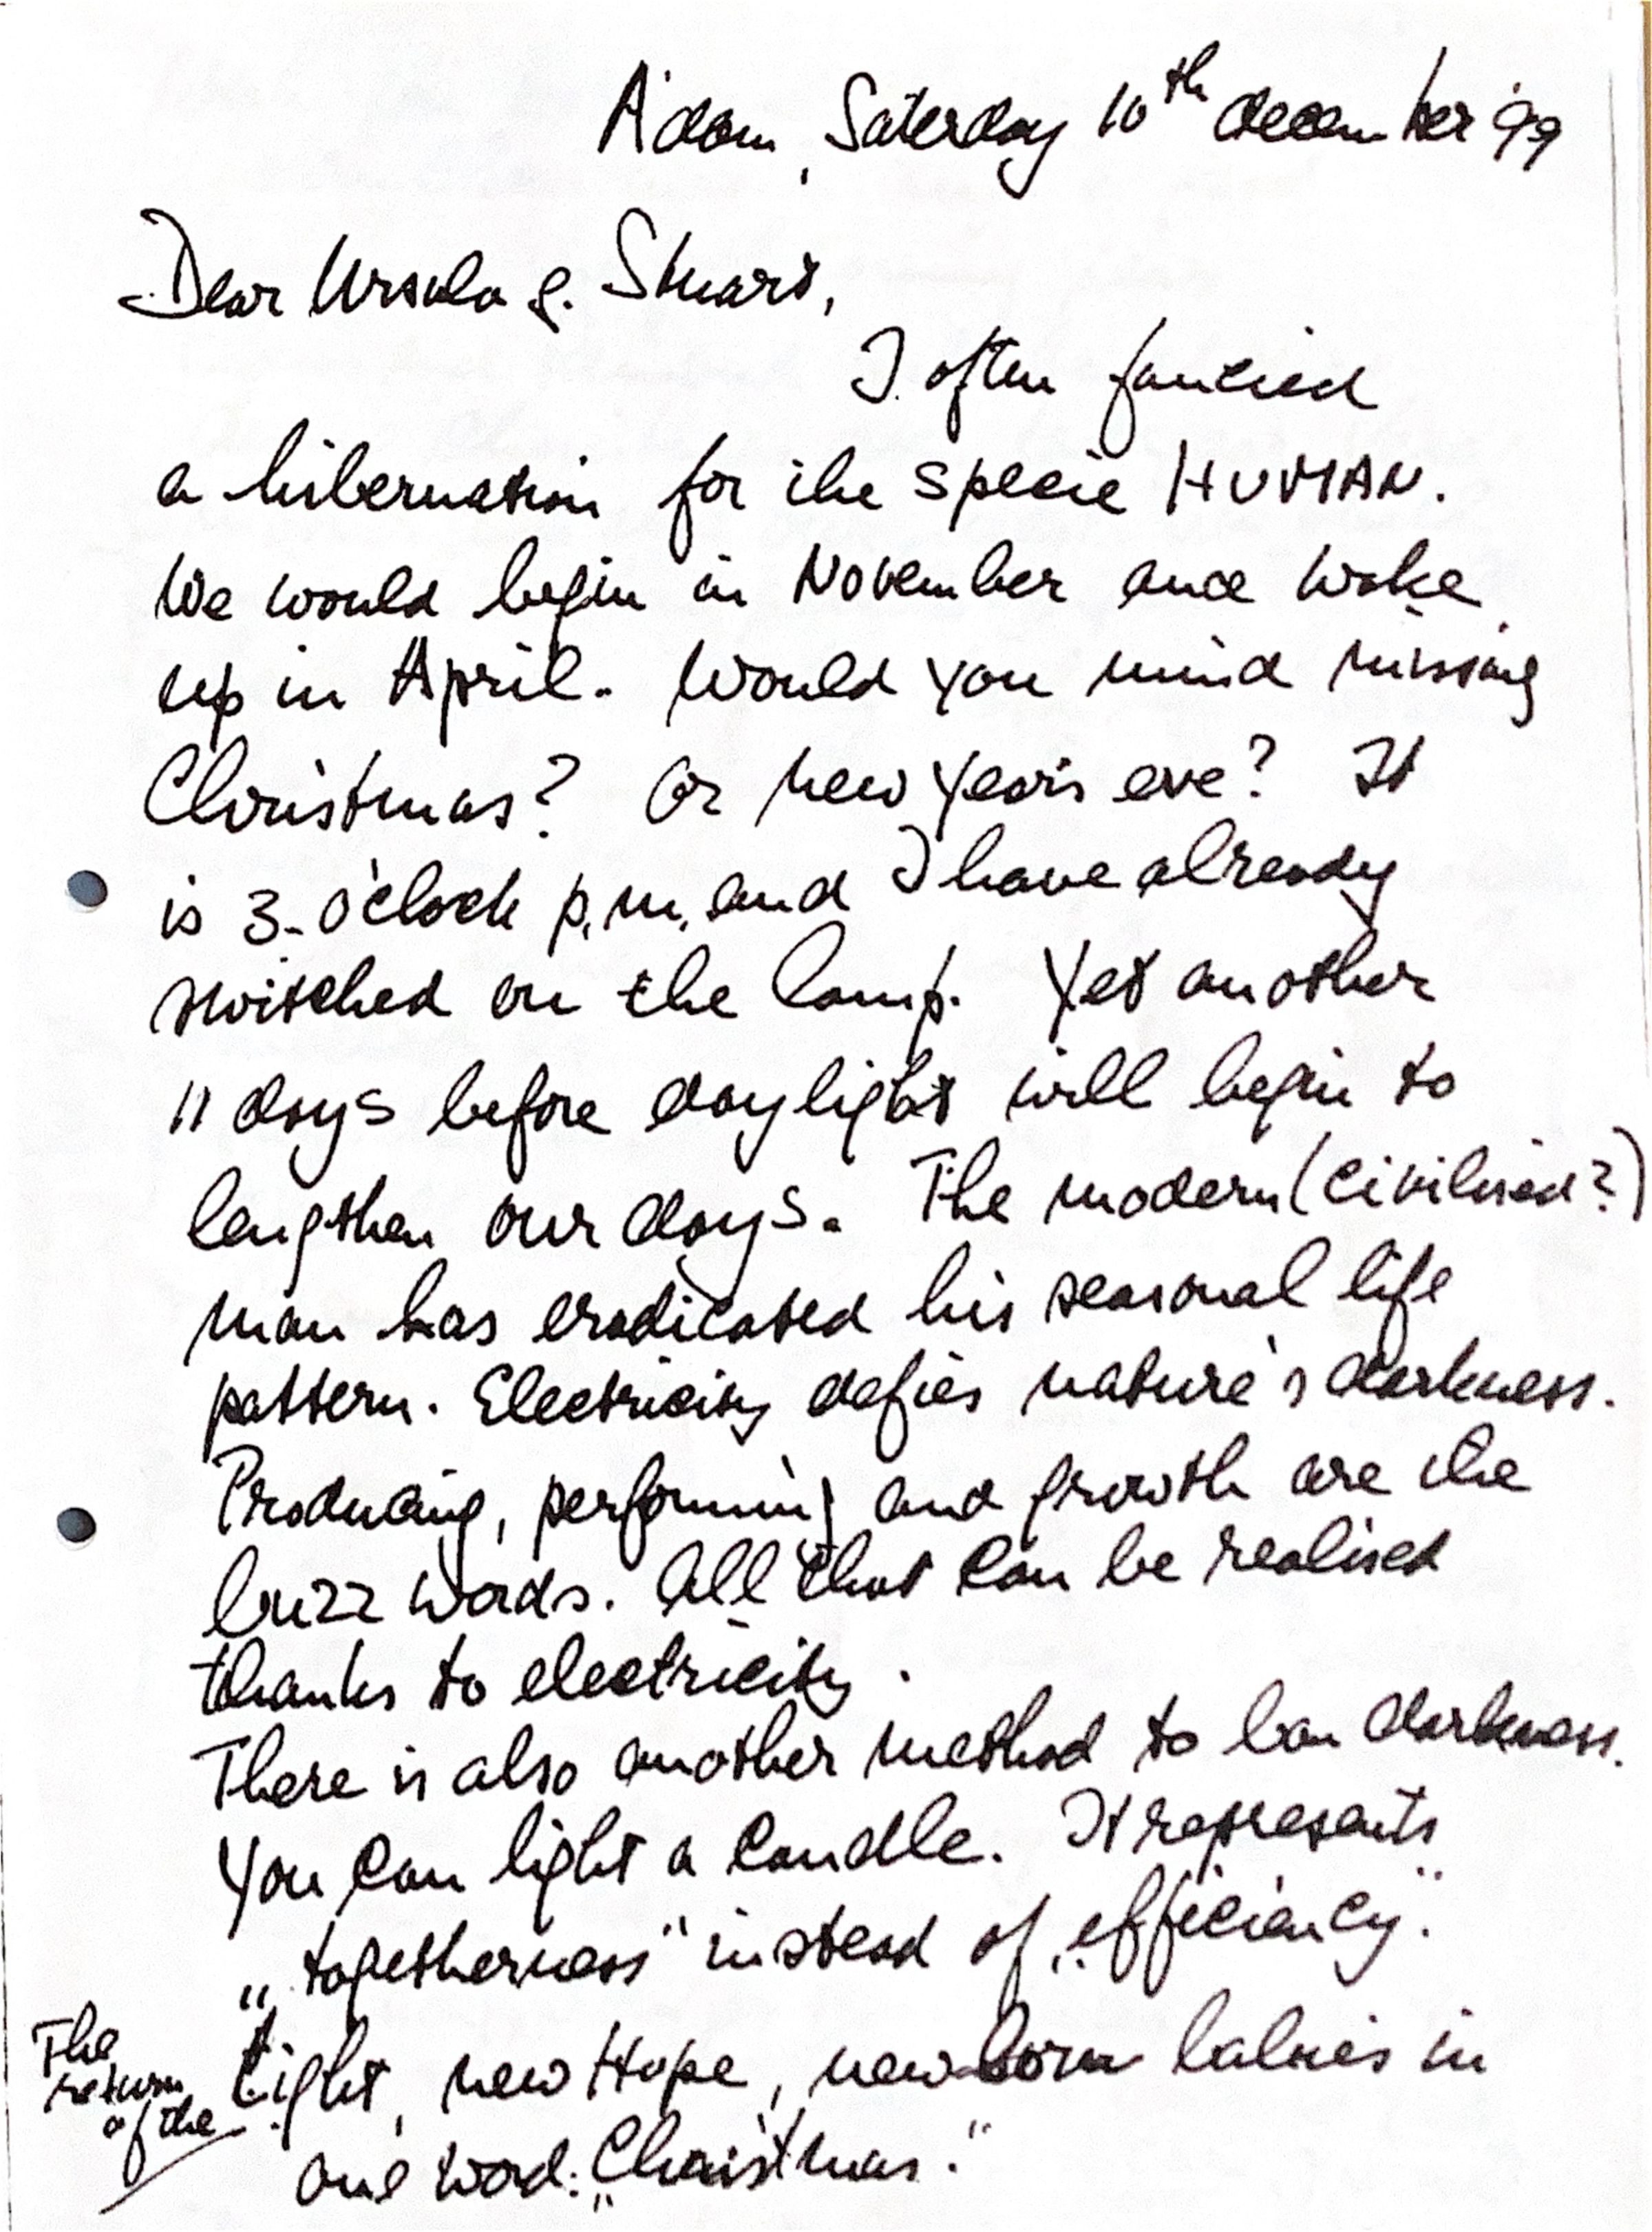 A'dam, Saterday 10th december '99
Dear Ursula & Stuart,
I often fancied
a hibernation for the specie HUMAN.
We would begin in November and wake
up in April. Would you mind missing
Christmas? Or new year's eve? It
is 3 o'clock p.m. and I have already
switched on the lamp. Yet another
11 days before daylight will begin to
lengthen our days. The modern (civilised?)
man has eradicated his seasonal life
pattern. Electricity defies nature's darkness.
Producing, performing and growth are the
buzz words. All that can be realised
thanks to electricity.
There is also another method to ban darkness.
You can light a candle. It represents
„togetherness" instead of „efficiency".
The return of the light, new Hope, newborn babies in
one word: „Christmas."